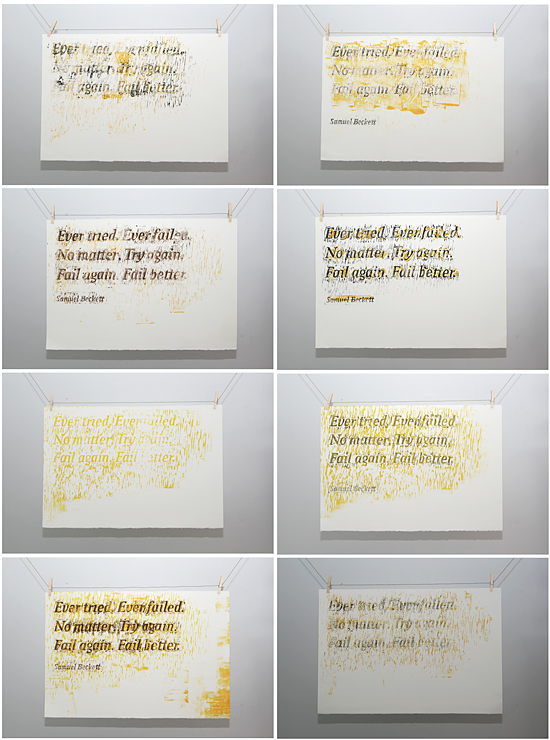 Ever tried. Ever failed.
No matter. Try again.
Fail again. Fail better.
Ever tried. Ever failed.
No matter. Try again.
Fail again. Fail better.
Samuel Beckett
Ever tried. Ever failed.
No matter. Try again.
Fail again. Fail better.
Samuel Beckett
Ever tried. Ever failed.
No matter. Try again.
Fail again. Fail better.
Samuel Beckett
Ever tried. Ever failed.
No matter. Try again.
Fail again. Fail better.
Ever tried. Ever failed.
No matter. Try again.
Fail again. Fail better.
Samuel Beckett
Ever tried. Ever failed.
No matter. Try again.
Fail again. Fail better.
Samuel Beckett
Ever tried. Ever failed.
No matter. Try again.
Fail again. Fail better.